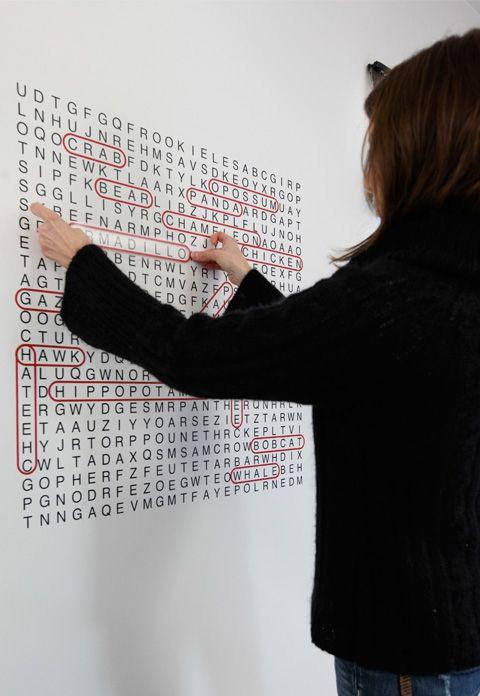 UDTGFGQFROOKIELESABCGIRP
LNHUJNREHMSAVSDKEOYXRGOP
OQOCRABFDKTYLKOPOSSUMUAY
TNNEWKTLAARXPANDAARDGAPT
SIPFKBEARLIBZJKPLFLUJNOH
SGGLLLISYRGCHAMELEONAOAO
REFNARMPHOZJ CHICKEN
RMADILLO
BENRWLYRL
DTCMVAZF
AGT EDGFK
GAZ
OOG
CTUR
HAWKYDQ
ALUQGWNOR
TDHIPPOPOTAM
ERGWYDGESMRPANTHERQNHRLK
ETAAUZIYYOARSEZIETZTARWN
HYJRTORPPOUNETHRCKEPLTVI
CWLTADAXQSMSAMCROWBOBCAT
GOPHERFZFEUTETARBARWHDIX
PGNODRFEZOEGWTEOWHALEBEH
TNNGAQEVMGMTFAYEPOLRNEDM